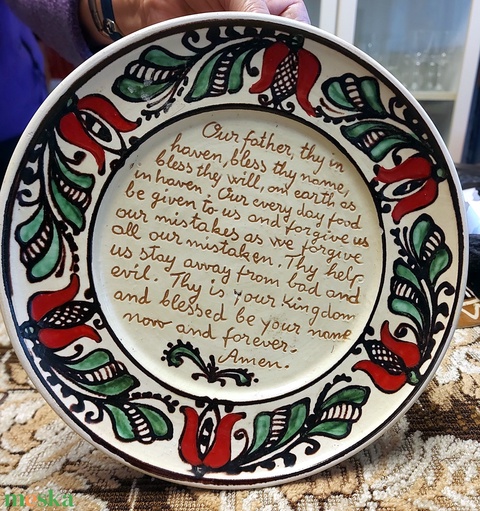 Our father, thy in
haven, bless thy name,
bless they will, on earth as
in haven. Our every day food
be given to us and forgive us
our mistakes as we forgive
all our mistaken. Thy help
us stay away from bad and
evil. Thy is your Kingdom
and blessed be your name
now and forever.
Amen.
meska